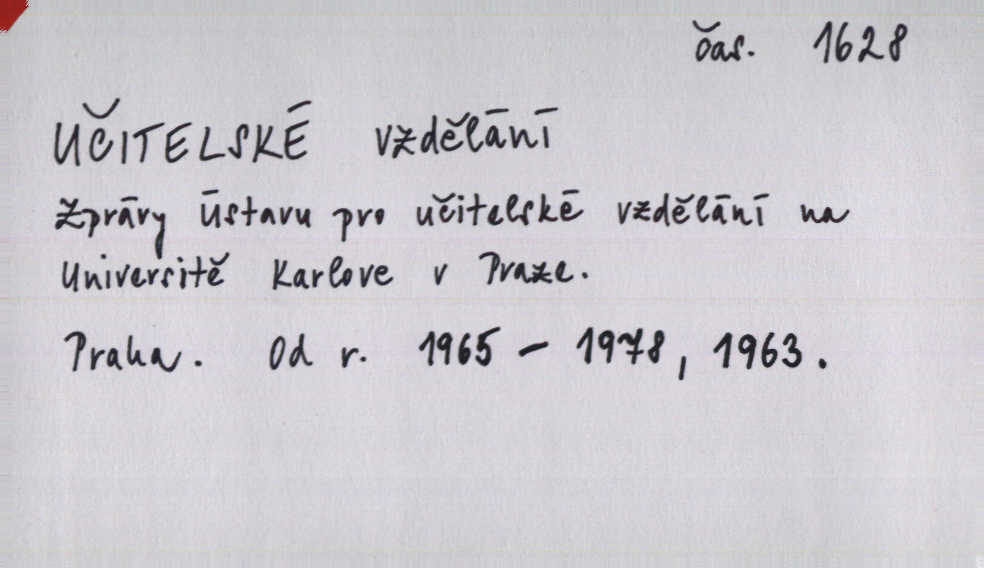 čas. 1628
UČITELSKÉ vzdělání
Zprávy ústavu pro učitelské vzdělání na
Universitě Karlove v Praze.
Praha. Od r. 1965 - 1978, 1963.